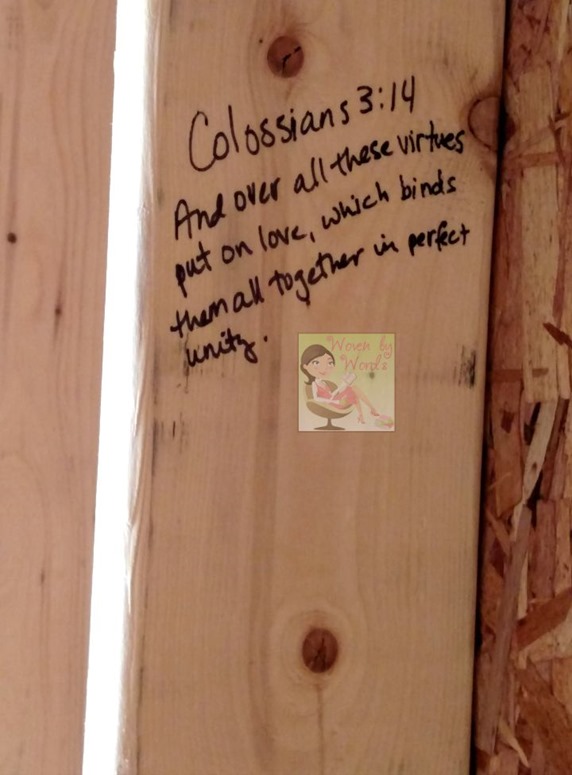 Colossians 3:14
And over all these virtues
put on love, which binds
them all together in perfect
unity.
Woven by
Words